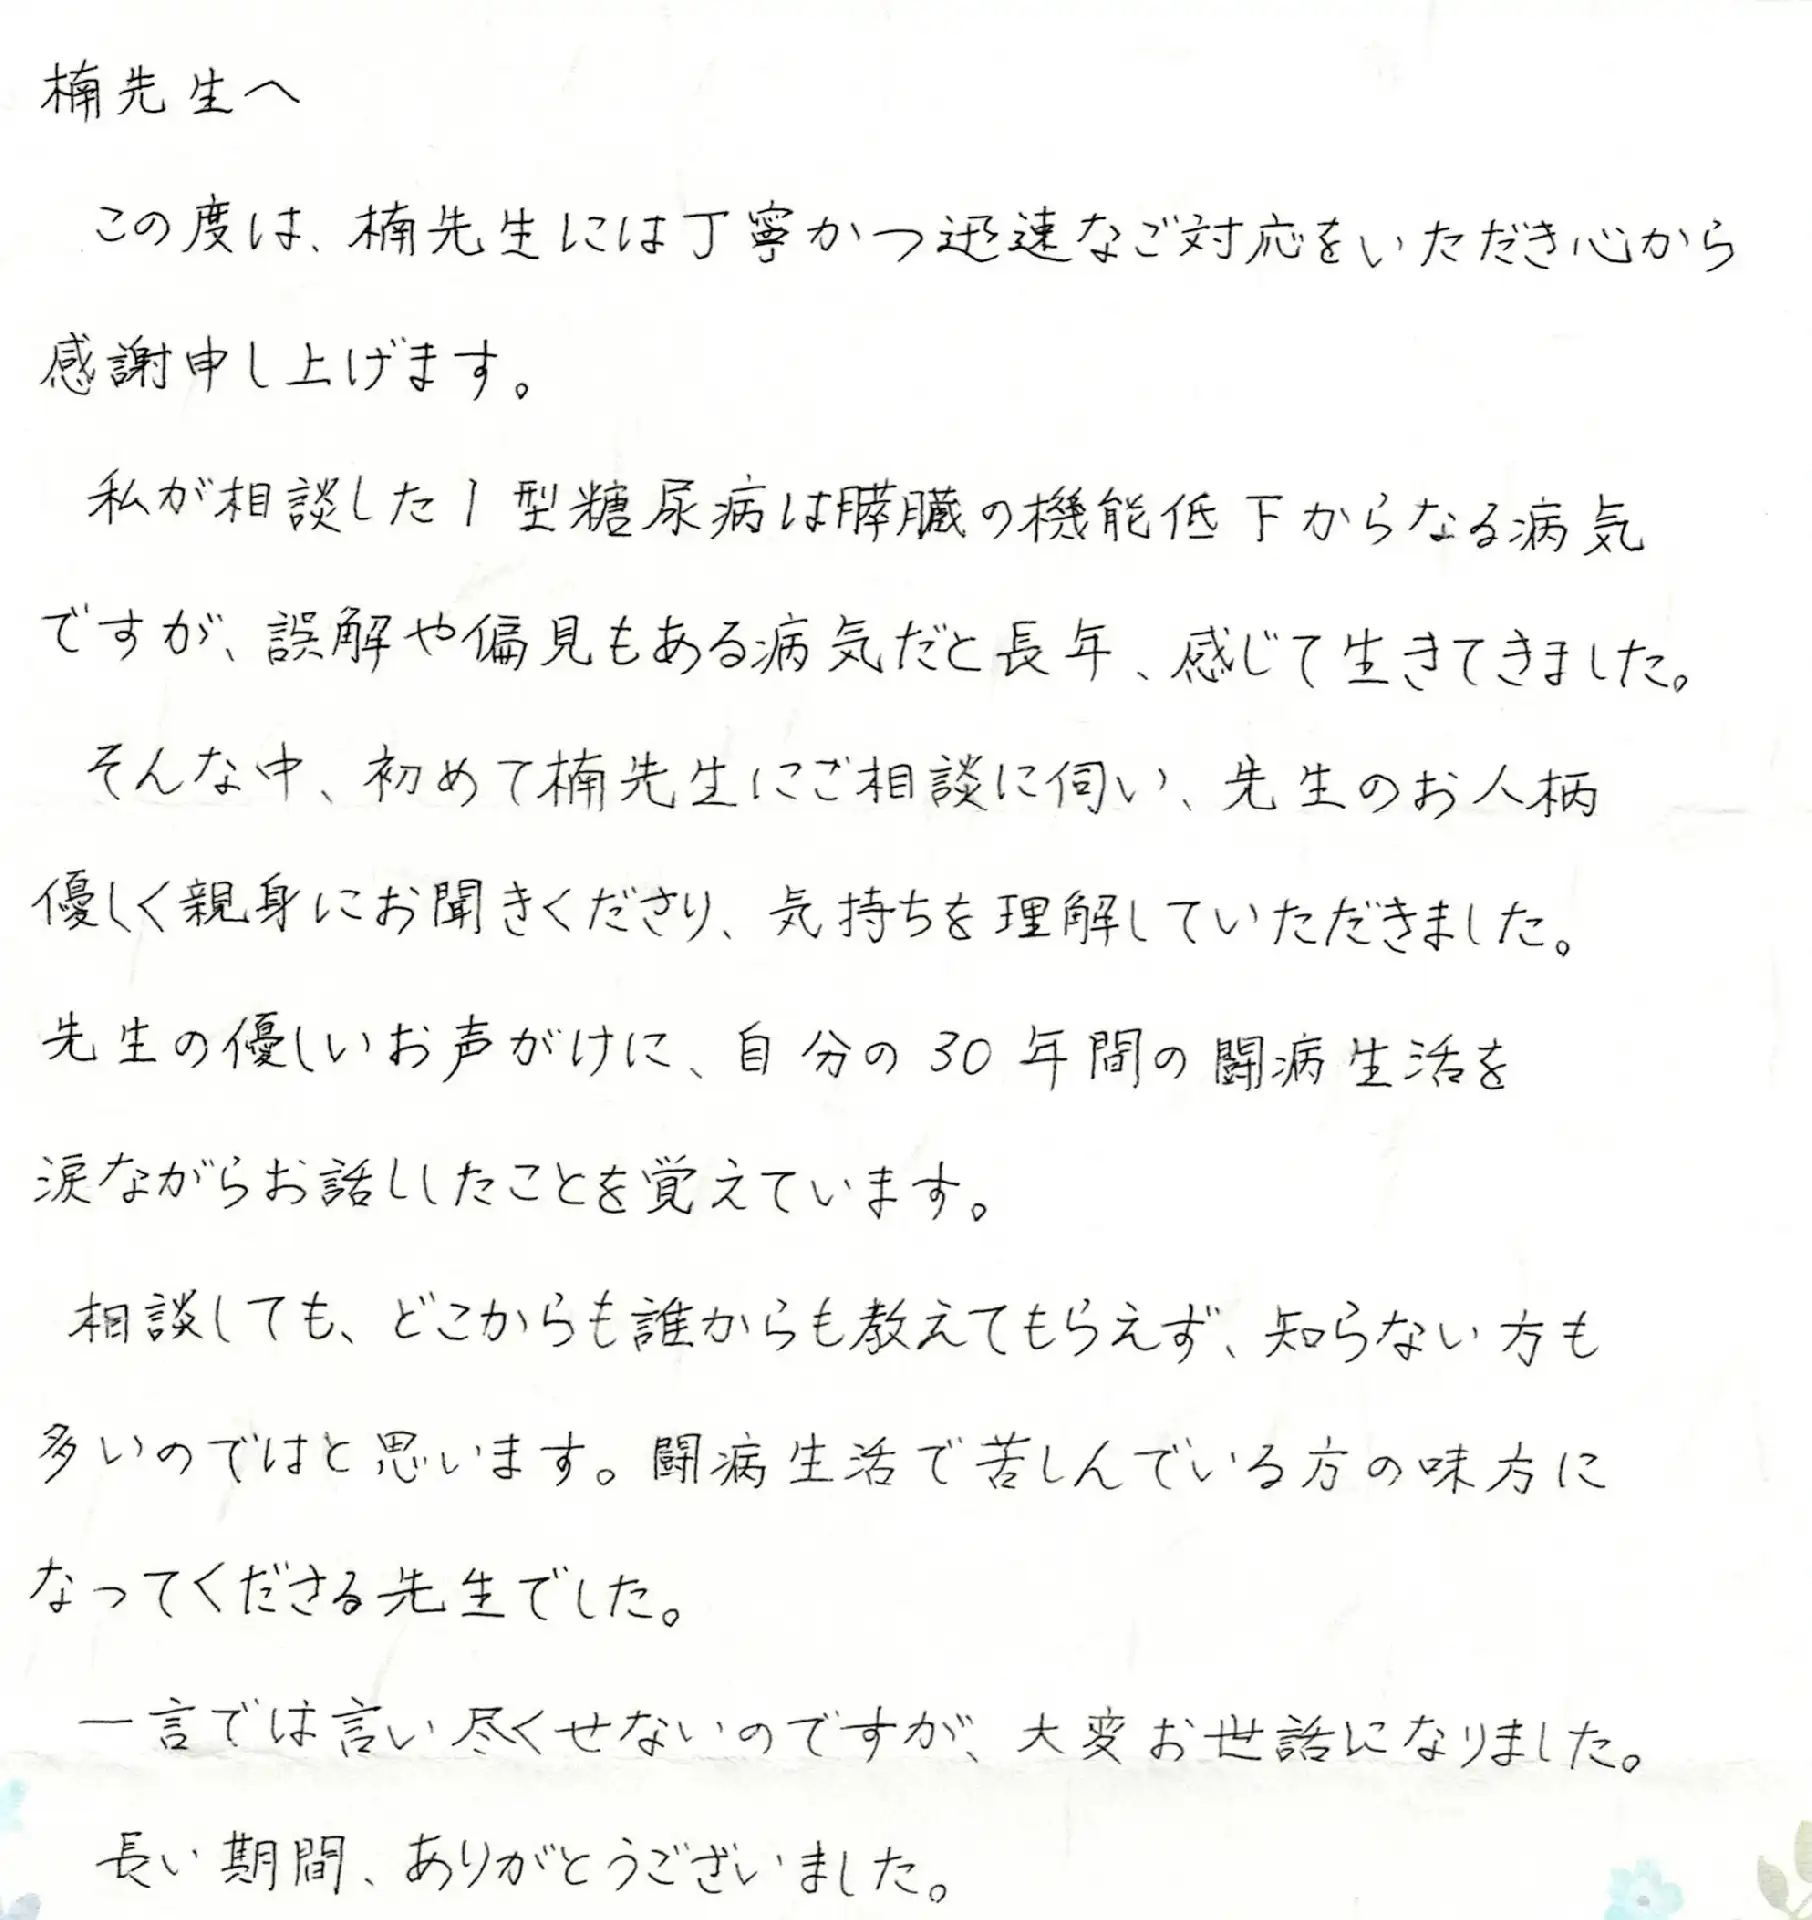 楠先生へ
この度は、楠先生には丁寧かつ迅速なご対応をいただき心から
感謝申し上げます。
私が相談した1型糖尿病は膵臓の機能低下からなる病気
ですが、誤解や偏見もある病気だと長年、感じて生きてきました。
そんな中、初めて楠先生にご相談に伺い、先生のお人柄
優しく親身にお聞きくださり、気持ちを理解していただきました。
先生の優しいお声がけに、自分の30年間の闘病生活を
涙ながらお話ししたことを覚えています。
相談しても、どこからも誰からも教えてもらえず、知らない方も
多いのではと思います。闘病生活で苦しんでいる方の味方に
なってくださる先生でした。
一言では言い尽くせないのですが、大変お世話になりました。
長い期間、ありがとうございました。